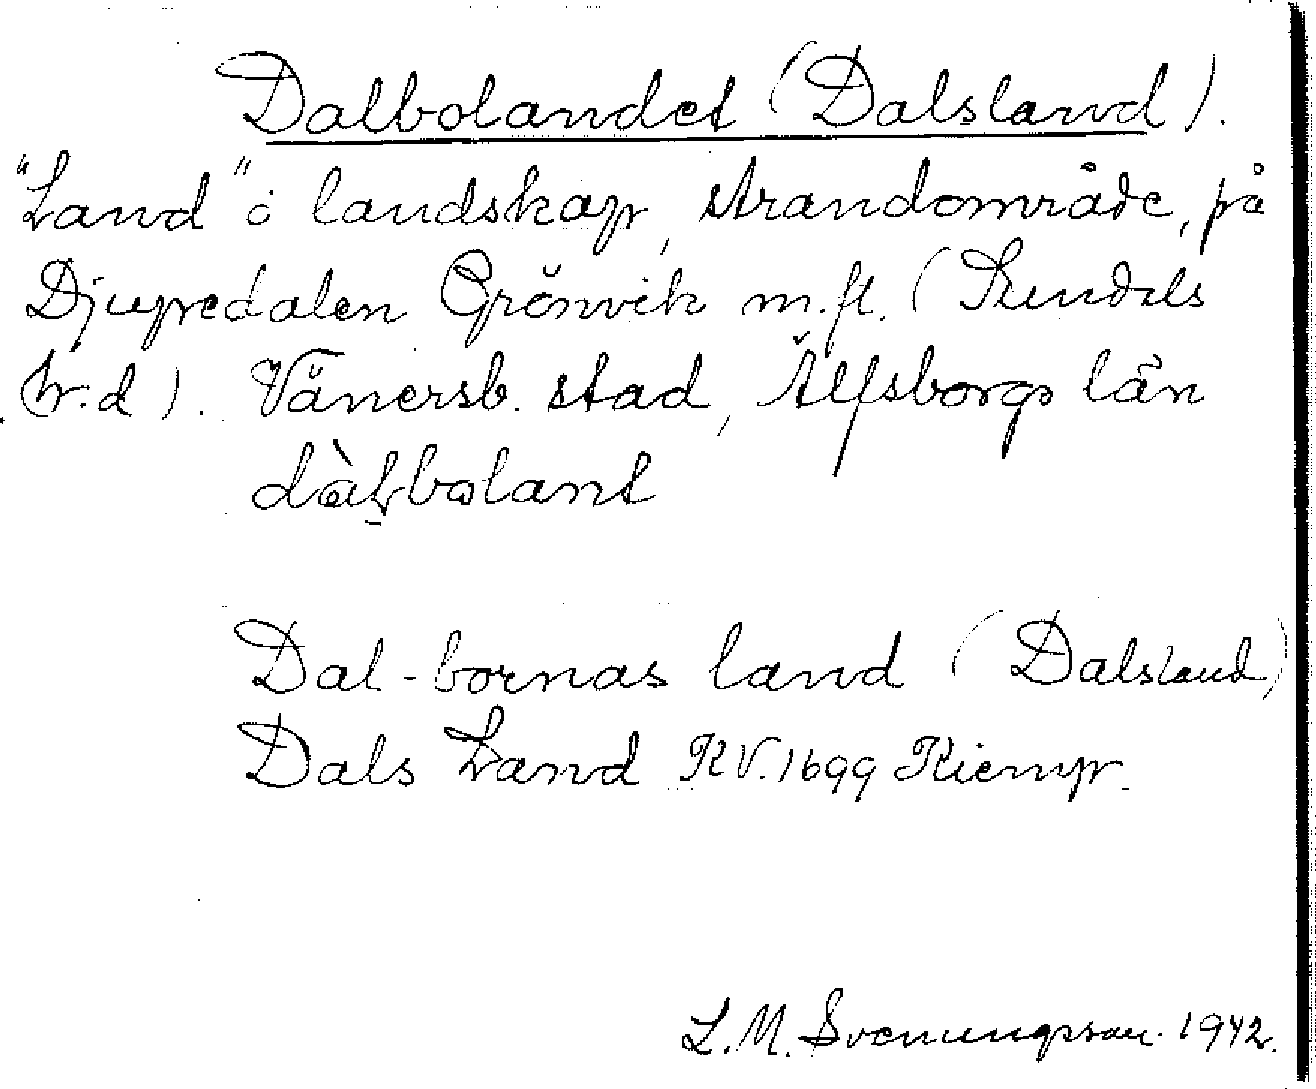 Dalbolandet (Dalsland).
"Land" i landskap, strandområde, på
Djupedalen Grönvik m.fl. (
tr.d). Vänersb. stad, Älfsborgs län
dàl̥bolant
Dal-bornas land (Dalsland)
Dals Land KV. 1699 Kiemp.
L.M. Svenungsson 1942.